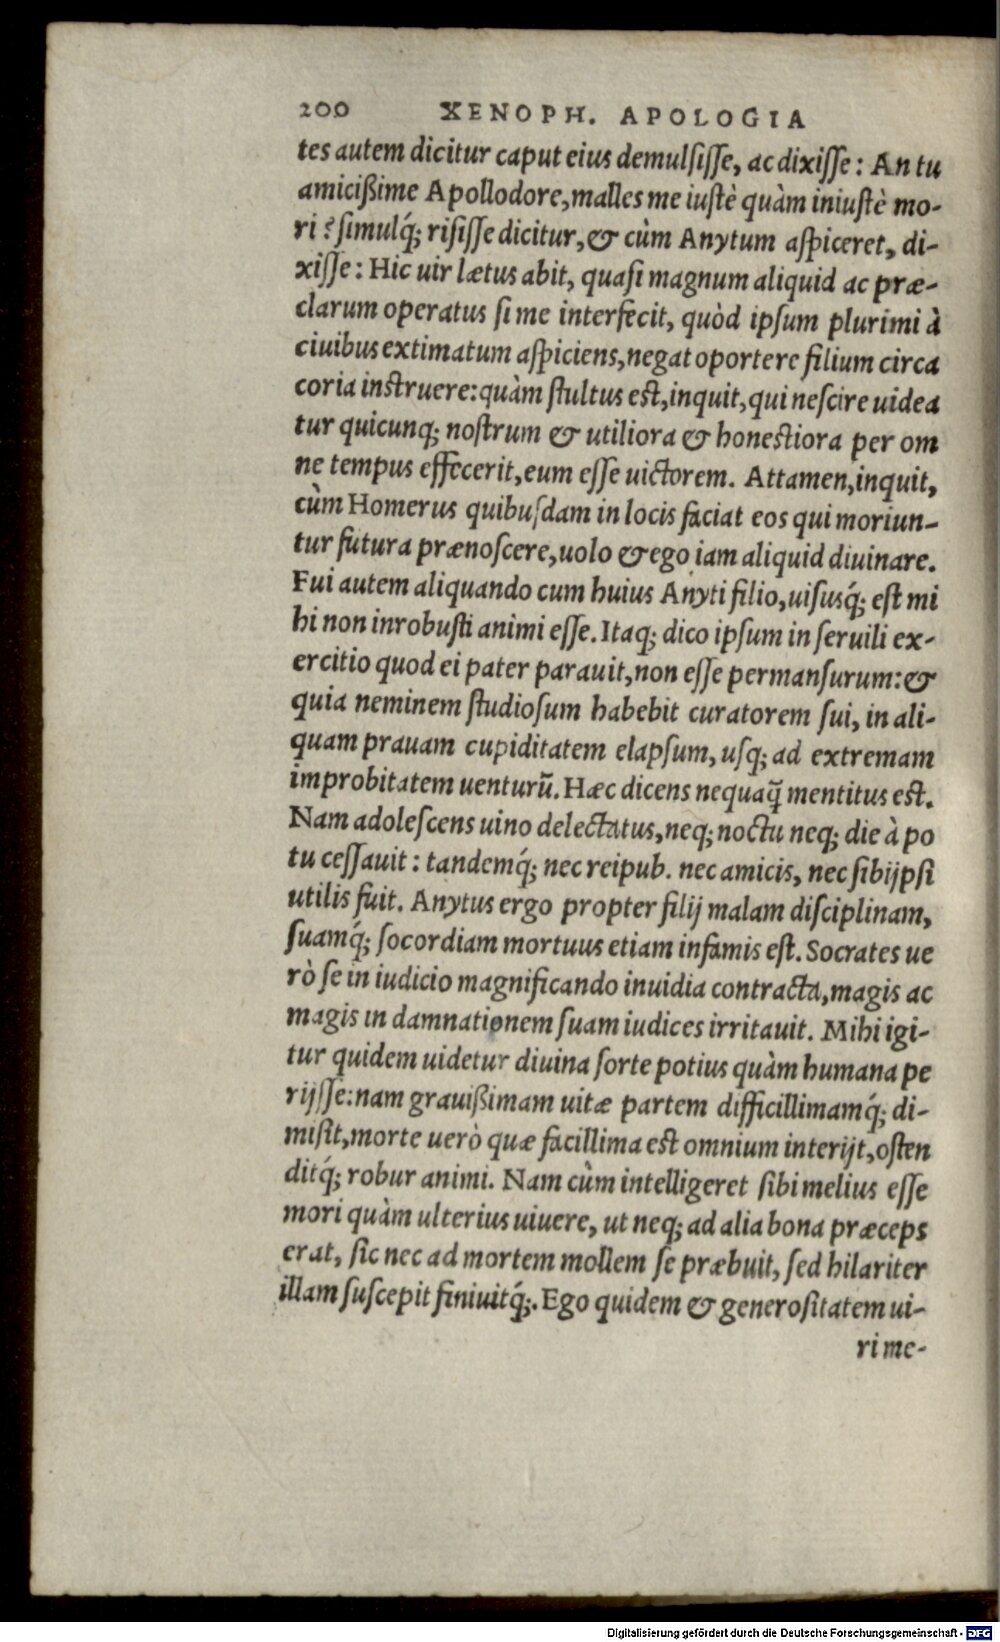 200 XENOPH. APOLOGIA
tes autem dicitur caput eius demulsisse, ac dixisse: An tu
amicißime Apollodore, malles me iustè quàm iniustè mo-
ri? simulq́; risisse dicitur, & cùm Anytum aspiceret, di-
xisse: Hic uir lætus abit, quasi magnum aliquid ac præ-
clarum operatus si me interfecit, quòd ipsum plurimi à
ciuibus extimatum aspiciens, negat oportere filium circa
coria instruere: quàm stultus est, inquit, qui nescire uidea
tur quicunq; nostrum & utiliora & honestiora per om
ne tempus effecerit, eum esse uictorem. Attamen, inquit,
cùm Homerus quibusdam in locis faciat eos qui moriun-
tur futura prænoscere, uolo & ego iam aliquid diuinare.
Fui autem aliquando cum huius Anyti filio, uisusq́; est mi
hi non inrobusti animi esse. Itaq; dico ipsum in seruili ex-
ercitio quod ei pater parauit, non esse permansurum: &
quia neminem studiosum habebit curatorem sui, in ali-
quam prauam cupiditatem elapsum, usq; ad extremam
improbitatem uenturū. Hæc dicens nequaq̃ mentitus est.
Nam adolescens uino delectatus, neq; noctu neq; die à po
tu cessauit: tandemq́; nec reipub. nec amicis, nec sibijpsi
utilis fuit. Anytus ergo propter filij malam disciplinam,
suamq́; socordiam mortuus etiam infamis est. Socrates ue
rò se in iudicio magnificando inuidia contracta, magis ac
magis in damnationem suam iudices irritauit. Mihi igi-
tur quidem uidetur diuina sorte potius quàm humana pe
rijsse: nam grauißimam uitæ partem difficillimamq́; di-
misit, morte uerò quæ facillima est omnium interijt, osten
ditq́; robur animi. Nam cùm intelligeret sibi melius esse
mori quàm ulterius uiuere, ut neq; ad alia bona præceps
erat, sic nec ad mortem mollem se præbuit, sed hilariter
illam suscepit finiuitq́;. Ego quidem & generositatem ui-
ri me-
Digitalisierung gefördert durch die Deutsche Forschungsgemeinschaft - DFG